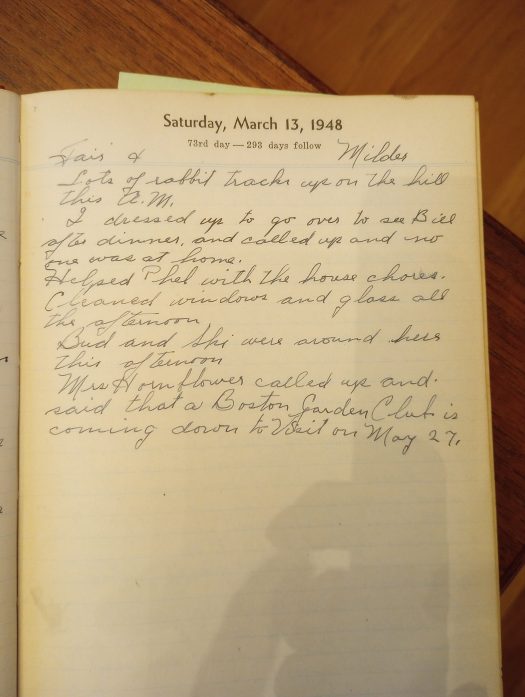 Saturday, March 13, 1948
73rd day — 293 days follow
Fair & Milder
Lots of rabbit tracks up on the hill
this A.M.
I dressed up to go over to see Bill
after dinner, and called up and no
one was at home.
Helped Phel with the house chores.
Cleaned windows and glass all
the afternoon
Bud and Ski were around here
this afternoon
Mrs Hornflower called up and
said that a Boston Garden Club is
coming down to Visit on May 27.